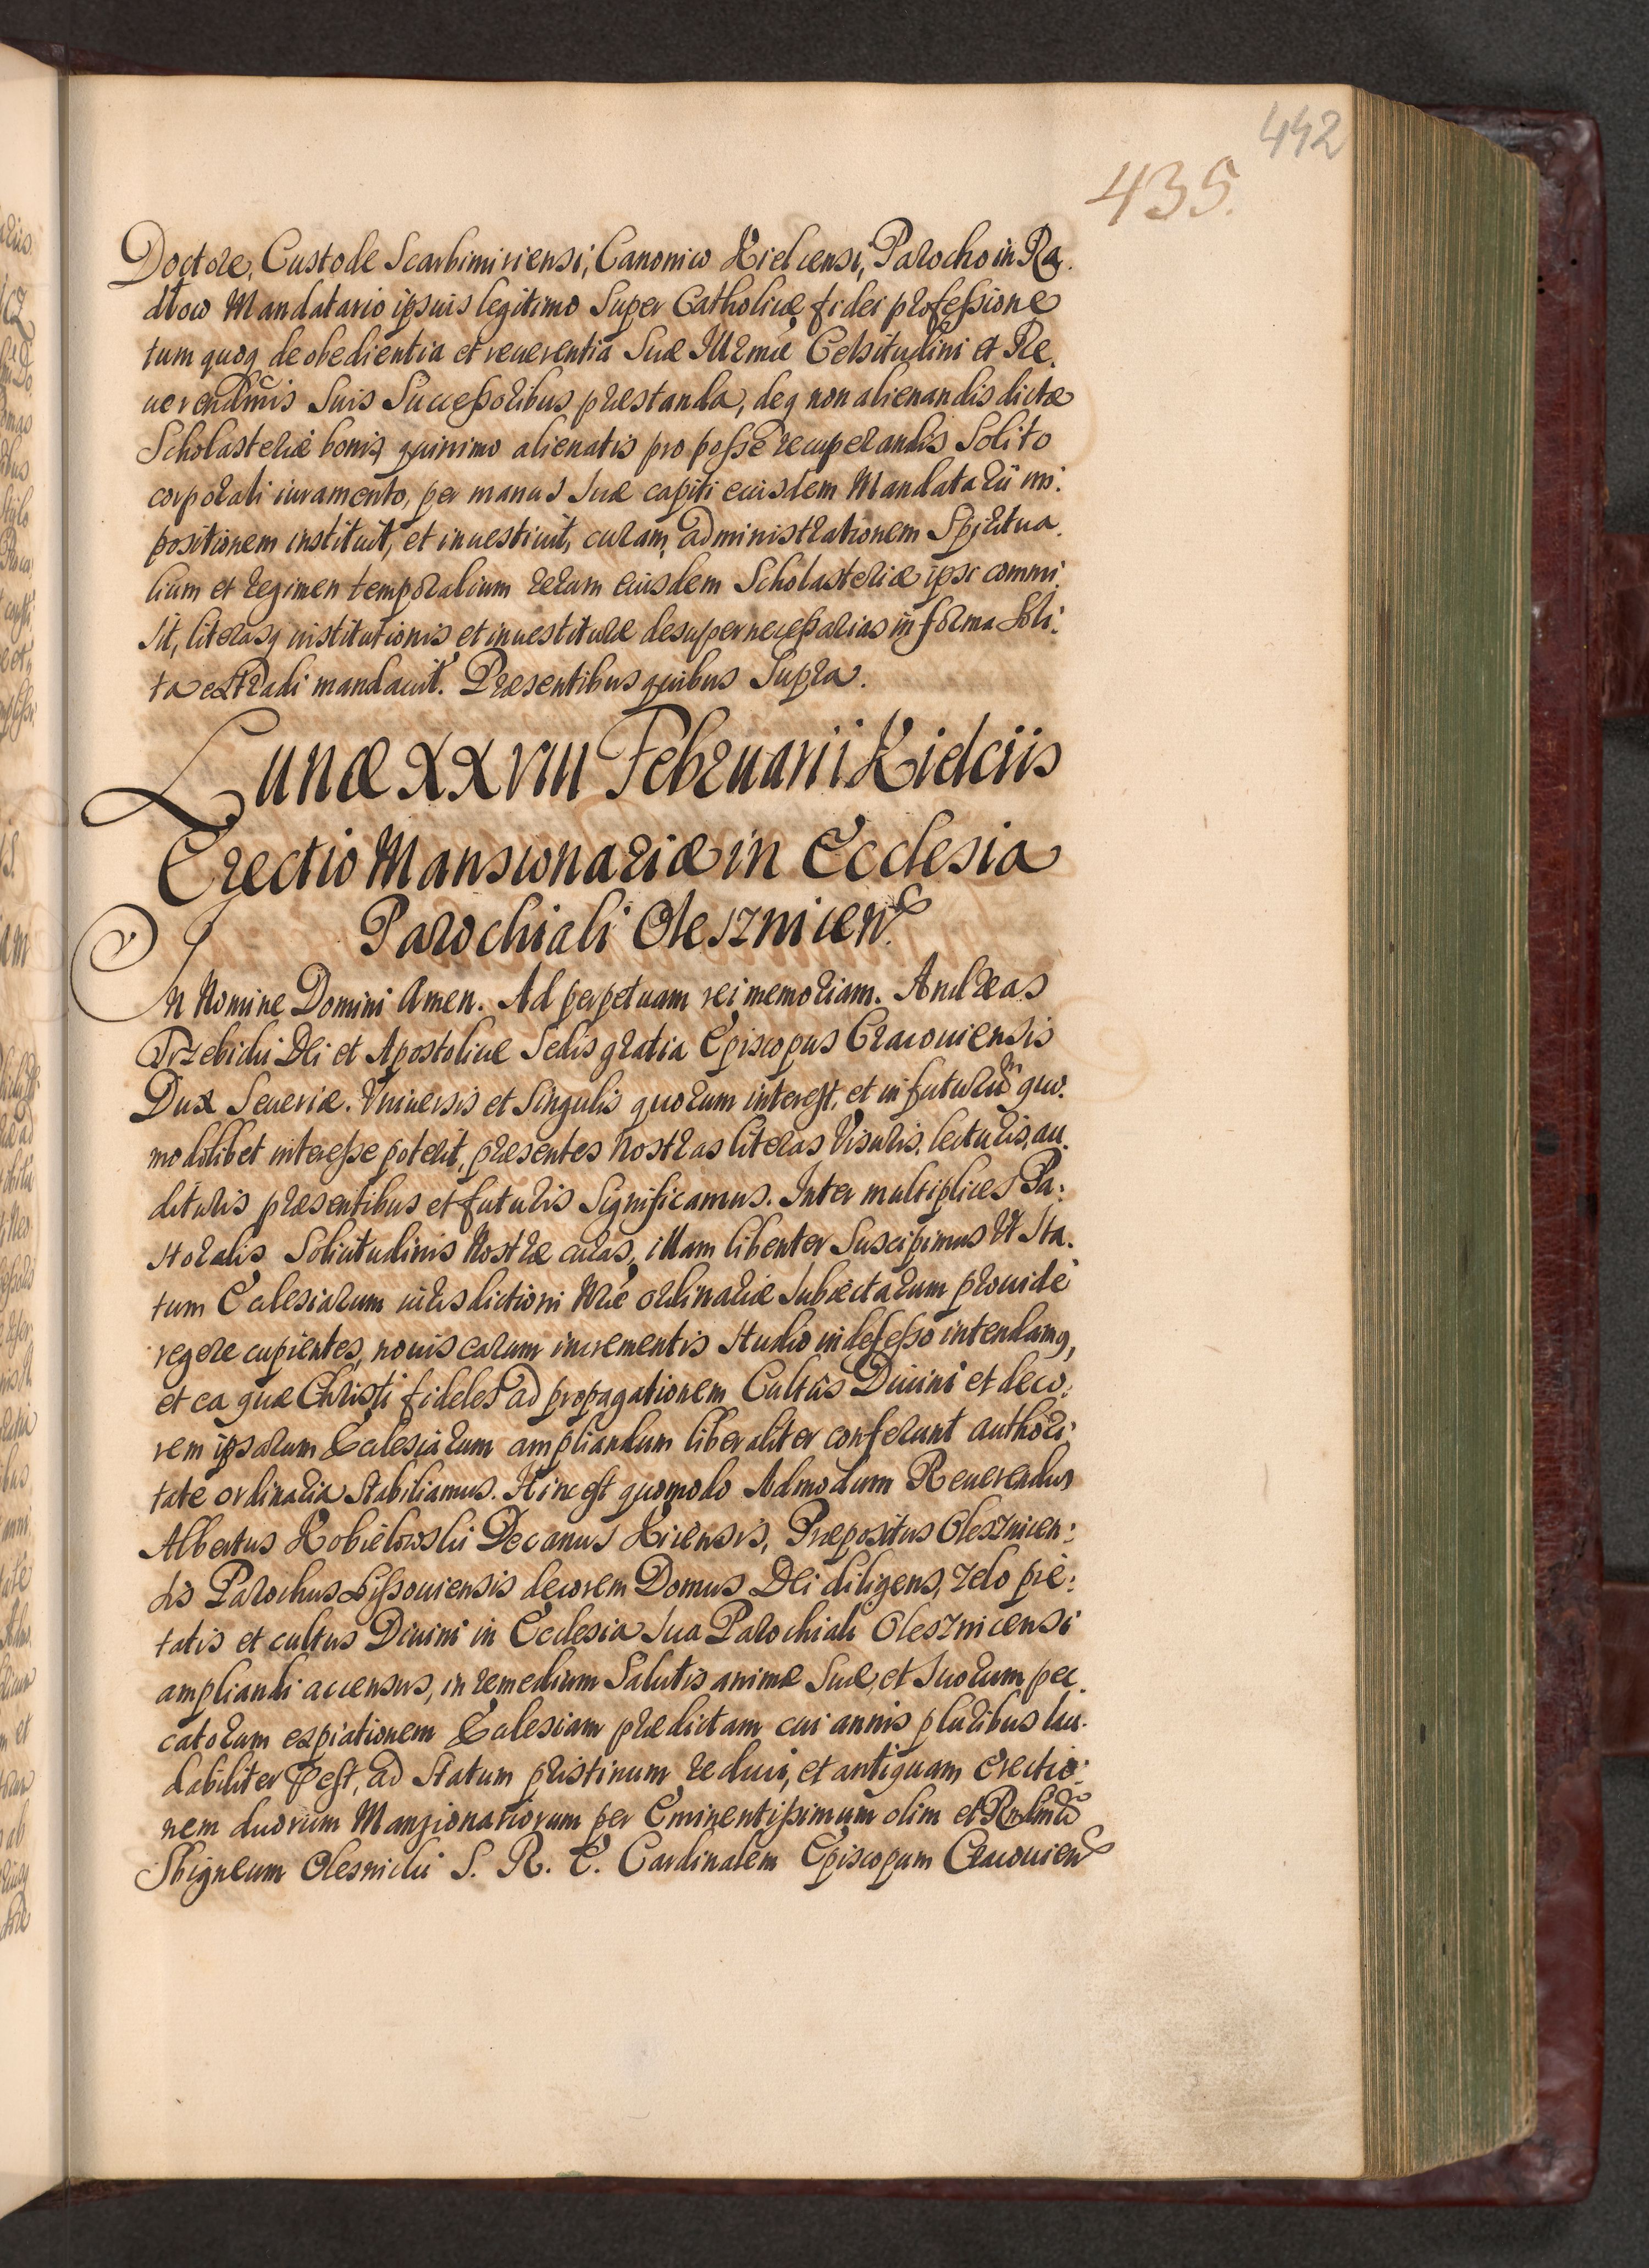 442
435.
Doctore, Custode Scarbimiriensi, Canonico Kielcensi, Parocho in Ra.
dłow Mandatario ipsius legitimo Super Catholicæ fidei professione
tum quoq de obedientia et reuerentia Suæ Illrmæ Celsitudini et Re.
uerendmis Suis Successoribus præstanda, deq non alienandis dictæ
Scholasteriæ bonis, quinimo alienatis pro posse recuperandis Solito
corporali iuramento, per manus Suæ capiti eiusdem Mandatarii im:
positionem instituit, et inuestiuit, curam, administrationem Spiritua.
lium et regimen temporalium rerum eiusdem Scholasteriæ ipsi commi.
sit, literasq institutionis et inuestituræ desuper necessarias in forma Soli:
ta extradi mandauit. Præsentibus quibus Supra.
Lunæ XXVIII Februarii Kielciis
Erectio Mansionariæ in Ecclesia
Parochiali Olesznicen.
In Nomine Domini Amen. Ad perpetuam rei memoriam. Andreas
Trzebicki Dei et Apostolicæ Sedis gratia Episcopus Cracouiensis
Dux Seueriæ. Vniuersis et Singulis quorum interest, et in futurum quo.
modolibet interesse poterit, præsentes Nostras literas Visuris, lecturis, au.
dituris præsentibus et futuris Significamus. Inter multiplices Pa:
storalis Solicitudinis Nostræ curas, illam libenter Suscipimus Vt Sta.
tum Eclesiarum iurisdictioni Nræ ordinariæ Subiectarum prouide
regere cupientes, nouis earum incrementis Studio indefesso intendamq,
et ea quæ Christi fideles ad propagationem Cultus Diuini et deco:
rem ipsarum Eclesiarum ampliandum liberaliter conferunt authori:
tate ordinaria Stabiliamus. Hinc est quomodo Admodum Reuerendus
Albertus Kobiełowski Decanus Kicensis, Præpositus Olesznicen:
sis Parochus Lissouiensis decorem Domus Dei diligens, zelo pie:
tatis et cultus Diuini in Ecclesia Sua Parochiali Olesznicensi
ampliandi accensus, in remedium Salutis animæ Suæ, et Suorum pec.
catorum expiationem Eclesiam prædictam cui annis pluribus lau.
dabiliter præest, ad Statum pristinum reduci, et antiquam Erectio:
nem duorum Manzionariorum per Eminentissimum olim et Rndmũ
Sbigneum Olesnicki S. R. E. Cardinalem Episcopum Cracouien